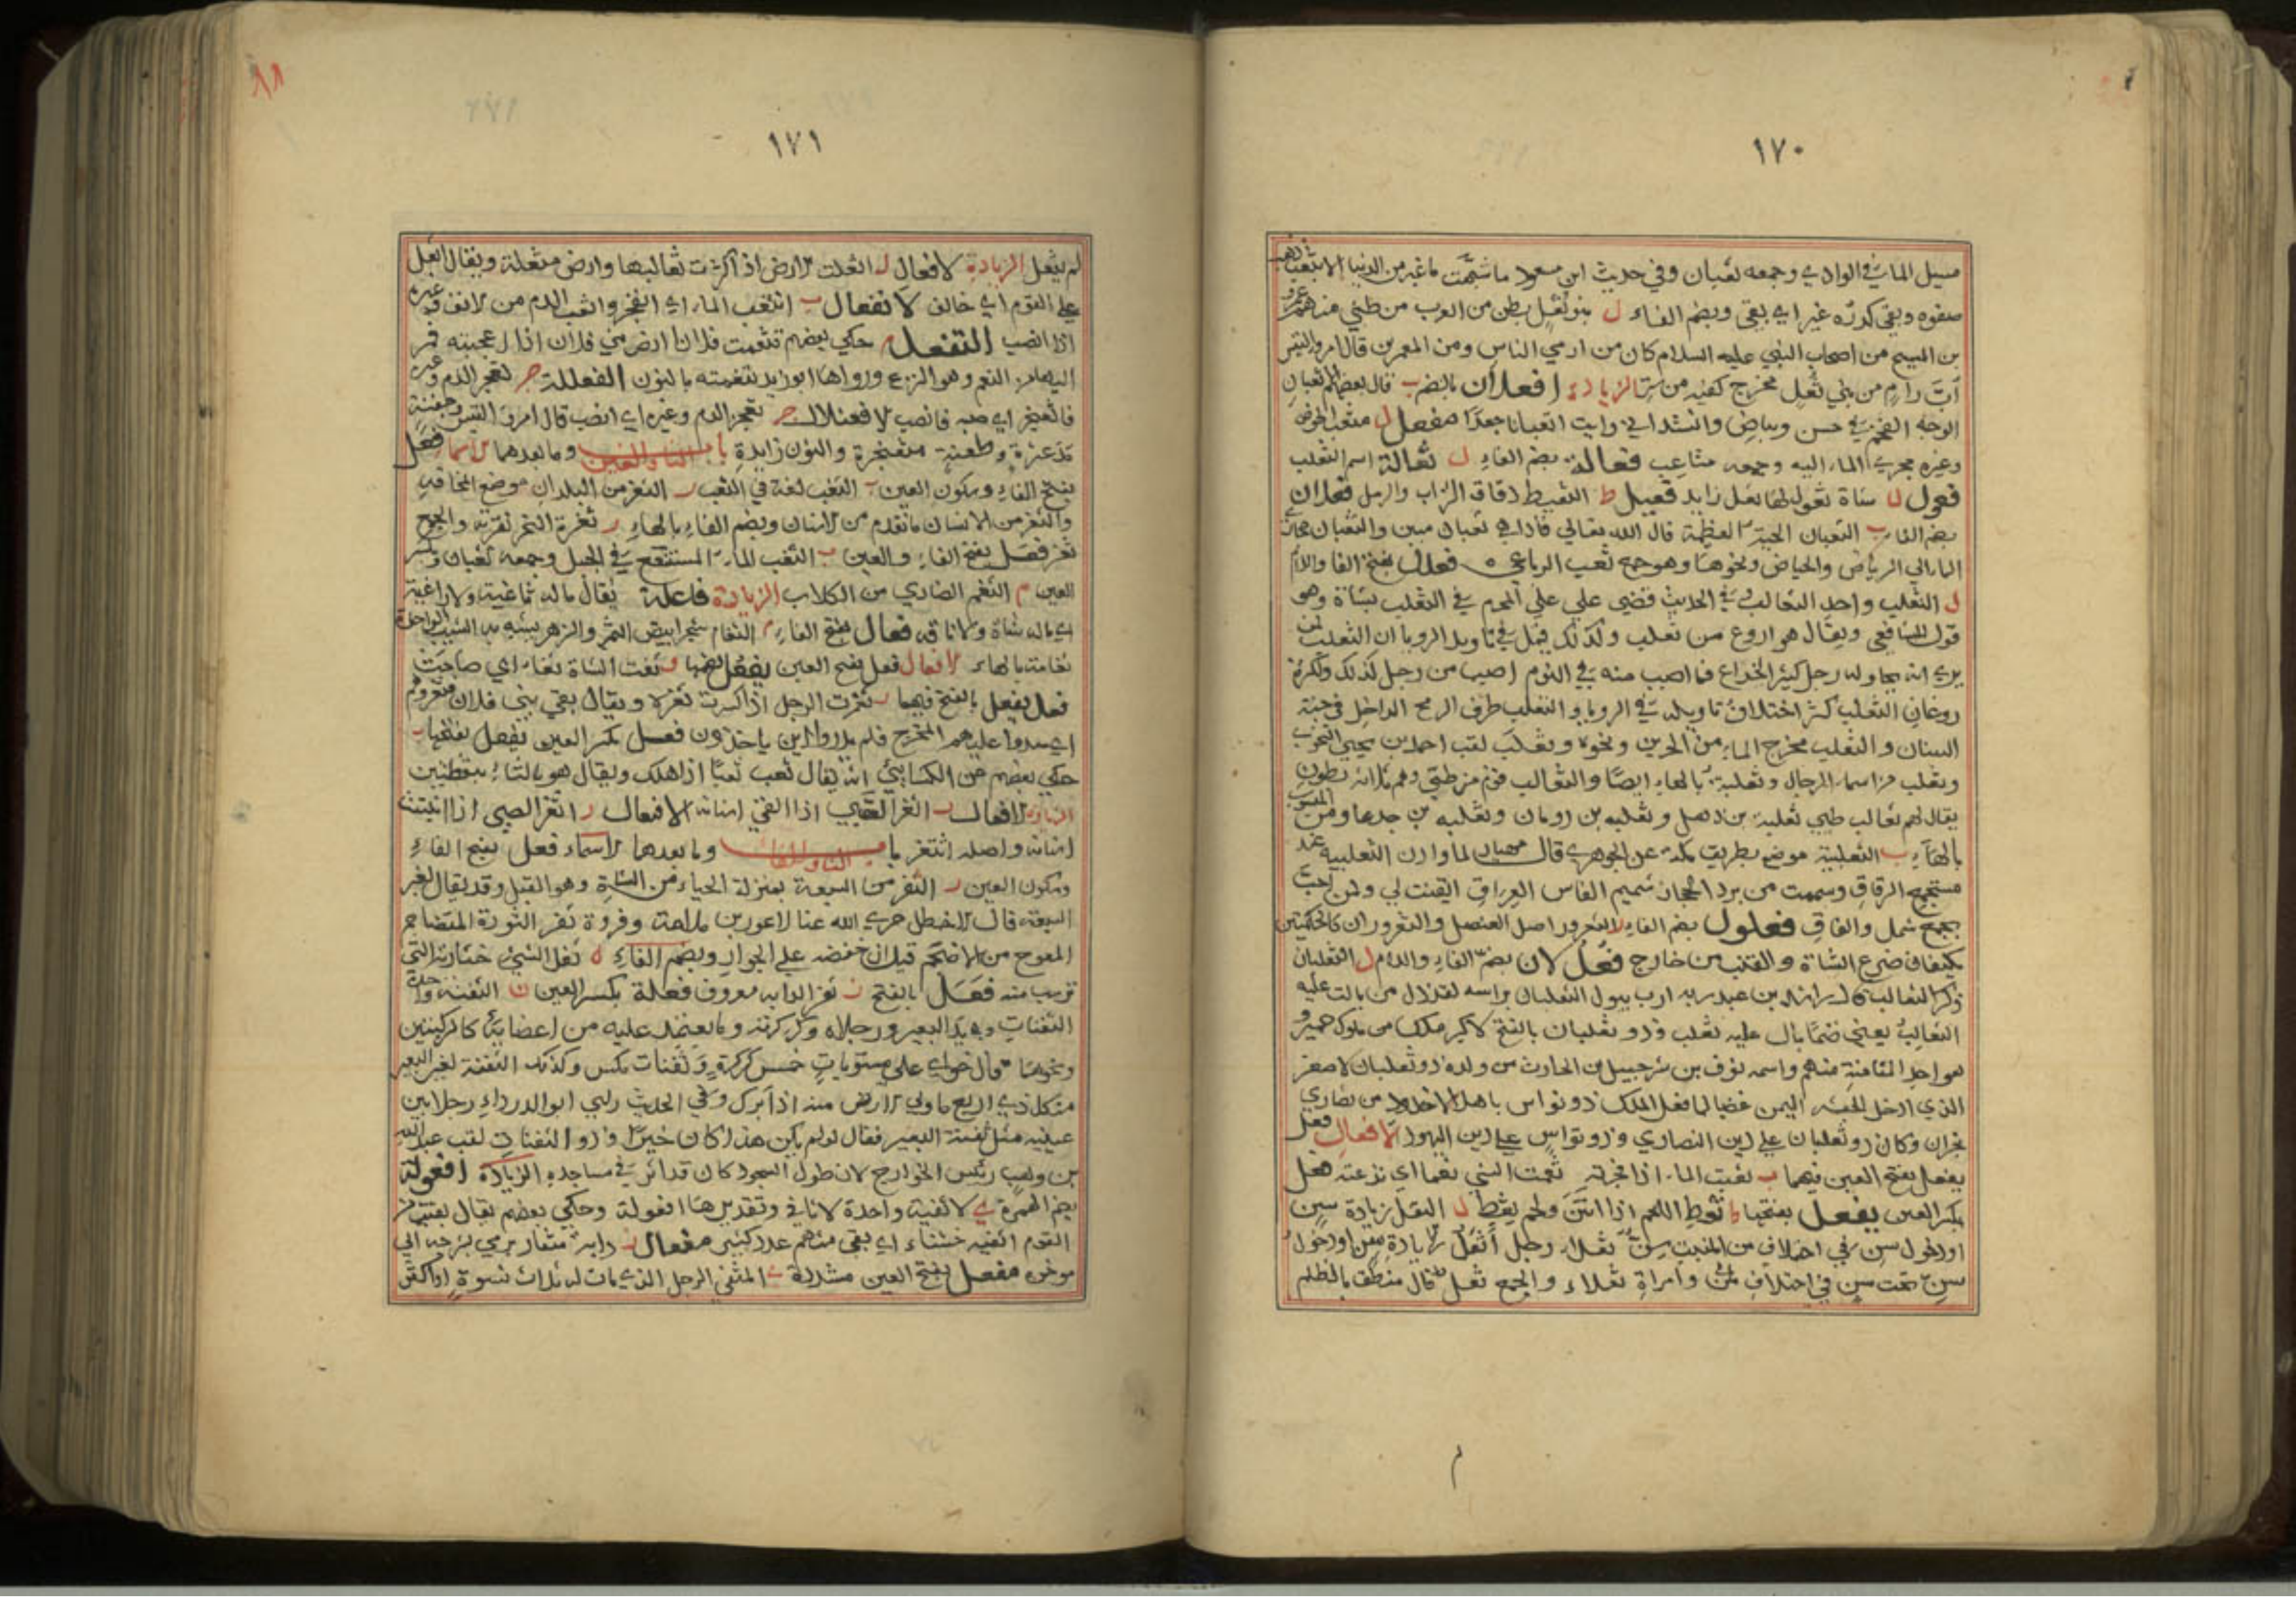 ١٧٠
مسيل الماء في الوادي وجمعه ثعبان وفي حديث ابن مسعود ما شبهت ما غبر من الدنيا الا بثغب ذهب
صفوه وبقي كدره غبر اي بقي وبضم الفاء ل بنو ثعل بطن من العرب من طيئ منهم عمرو
بن المسبح من اصحاب النبي عليه السلام كان من ارمي الناس ومن المعمرين قال امرؤ القيس
رب رام من بني ثعل مخرج كفيه من ستره الزيادة افعلان بالضم ب قال بعضهم الاثعبان
الوجه الفخم في حسن وبياض وانشد اني رايت اثعبانا جعدا مفعل ل مثعب الحوض
وغيره مجرى الماء اليه وجمعه مثاعب فعالة بضم الفاء ل ثعالة اسم الثعلب
فعول ل شاة ثعول لها ثعل زايد فعيل ط الثعيط دقاق التراب والرمل فعلان
بضم الفاء ب الثعبان الحية العظيمة قال الله تعالى فاذا هي ثعبان مبين والثعبان مجاري
الماء الى الرياض والحياض ونحوها وهو جمع ثعب الرباعي فعلل بفتح الفا واللام
ل الثعلب واحد الثعالب وفي الحديث قضى علي على المحرم في الثعلب بشاة وهو
قول الشافعي ويقال هو اروغ من ثعلب ولذلك قيل في تاويل الرويا ان الثعلب لمن
يرى انه يحاوله رجل كثير الخداع فما اصيب منه في النوم اصيب من رجل كذلك ولكثرة
روغان الثعلب كثر اختلاف تاويله في الرويا والثعلب طرف الرمح الداخل في جبة
السنان والثعلب مخرج الماء من الجرين ونحوه وثعلب لقب احمد بن يحيى النحوي
وثعلب من اسماء الرجال وثعلبة بالهاء ايضا والثعالب قوم من طيئ وهم ثلاثة بطون
يقال لهم ثعالب طيئ ثعلبة بن ذهل وثعلبة بن رومان وثعلبة بن جدعا ومن المنسوب
بالهاء ب الثعلبية موضع بطريق مكة عن الجوهري قال مهيار لما وازن الثعلبية عند
مستجمع الرفاق وسممت من برد الحجاز شميم انفاس العراق ايقنت لي ولمن احب
بجمع شمل واتفاق فعلول بضم الفاء ر الثعرور اصل العنصل والثعروران كالحلمتين
يكتنفان ضرع الشاة والقنب من خارج فعللان بضم الفاء واللام ل الثعلبان
ذكر الثعالب قال راشد بن عبد ربه ارب يبول الثعلبان براسه لقد ذل من بالت عليه
الثعالب يعني صنما بال عليه ثعلب وذو ثعلبان بالفتح لاكبر ملك من ملوك حمير و
هو احد المثامنة منهم واسمه نوف بن شرحبيل بن الحارث من ولده ذو ثعلبان الاصغر
الذي ادخل الحبشة اليمن غضبا لما فعل الملك ذو نواس باهل الاخدود من نصارى
نجران وكان ذو ثعلبان على دين النصارى وذو نواس على دين اليهود الافعال فعل
يفعل بفتح العين فيهما ب ثعبت الماء اذا فجرته ثعمت الشي ثعما اي نزعته فعل
بكسر العين يفعل بفتحها ط ثعط اللحم اذا انتن ولحم ثعط ل الثعل زيادة سن
او دخول سن في اختلاف من المنبت سن ثعلاء رجل أثعل لزيادة سن او دخول
سن تحت سن في اختلاف وامراة ثعلاء والجمع ثعل قال منطق بالظلم
١٧١
٨٨
لم يثعل الزيادة الافعال ل اثعلت الارض اذا كثرت ثعالبها وارض مثعلة ويقال اثعل
على القوم اي خالف الانفعال ب انثعب الماء اي انفجر وانثعب الدم من الانف وغيره
اذا انصب التفعل م حكى بعضهم تثعمت فلانا ارض بني فلان اذا اعجبته فمر
اليها من الثعم وهو النزع ورواها ابو زيد تنعمته بالنون الفعللة جر ثعجر الدم وغيره
فاثعنجر اي صبه فانصب الافعنلال جر ثعجر الدم وغيره اي انصب قال امرؤ القيس وجفنة
مدعثرة وطعنة مثعنجرة والنون زايدة باب الثاء والغين وما بعدهما الاسماء فعل
بفتح الفاء وسكون العين ب الثغب لغة في الثغب ر الثغر من البلدان موضع المخافة
والثغر من الانسان ما تقدم من الاسنان وبضم الفاء بالهاء ر ثغرة النحر نقرته والجمع
ثغر فعل بفتح الفاء والعين ب الثغب الماء المستنقع في الجبل وجمعه ثغبان وبكسر
العين م الثغم الضاري من الكلاب الزيادة فاعلة يقال ماله ثاغية ولا راغية
اي ماله شاة ولا ناقة فعال بفتح الفاء م الثغام شجر ابيض الثمر والزهر يشبه به الشيب الواحدة
ثغامة بالهاء الافعال فعل بفتح العين يفعل بضمها و ثغت الشاة ثغاء اي صاحت
فعل يفعل بالفتح فيهما ر ثغرت الرجل اذا كسرت ثغره ويقال بقي بني فلان مثغروهم
اي سدوا عليهم المخرج فلم يدروا اين ياخذون فعل بكسر العين يفعل بفتحها ب
حكى بعضهم عن الكسائي انه يقال ثغب ثغبا اذا هلك ويقال هو بالتاء بنقطتين
الزيادة الافعال ر اثغر الصبي اذا القى اسنانه الافتعال ر اثغر الصبي اذا انبتت
اسنانه واصله اثتغر باب الثاء والفاء وما بعدهما الاسماء فعل بفتح الفاء
وسكون العين ر الثفر من السبعة بمنزلة الحياء من الشاة وهو القبل وقد يقال لغير
السبعة قال الاخطل جزى الله عنا الاعورين ملامة وفروة ثفر الثورة المتضاجم
المعوج من الاضجم قيل ان خفضه على الجوار وبضم الفاء ل ثفل الشيء خثارته التي
ترسب منه فعل بالفتح ر ثفر الدابة معروف فعلة بكسر العين ن الثفنة واحدة
الثفنات وهي يدا البعير ورجلاه وكركرته وما يعتمد عليه من اعضايه كالركبتين
ونحوها قال خوى على مستويات خمس كركرة وثفنات ملس وكذلك الثفنة لغير البعير
من كل ذي اربع ما ولي الارض منه اذا برك وفي الحديث راى ابو الدرداء رجلا بين
عينيه مثل ثفنة البعير فقال لو لم يكن هذا كان خيرا وذو الثفنات لقب عبد الله
بن وهب رئيس الخوارج لان طول السجود كان قد اثر في مساجده الزيادة افعولة
بضم الهمزة ي الاثفية واحدة الاثافي وتقديرها افعولة وحكى بعضهم يقال بقيت من
القوم اثفية خشناء اي بقي منهم عدد كثير مفعال ر دابة مثفار يرمي بسرجه الى
موخره مفعل بفتح العين مشددة ي المثفى الرجل الذي مات له ثلاث نسوة او اكثر